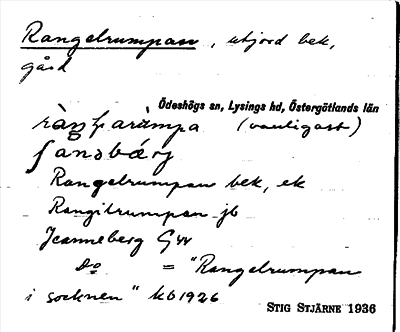 Rangelrumpan, utjord bek,
gård
Ödeshögs sn, Lysings hd, Östergötlands län
(vanligast)
sandbärj
Rangelrumpan bek, ek
Rangilrumpan jb
Jeanneberg GW
Do = "Rangelrumpan
i socknen" kb 1926
STIG STJÄRNE 1936